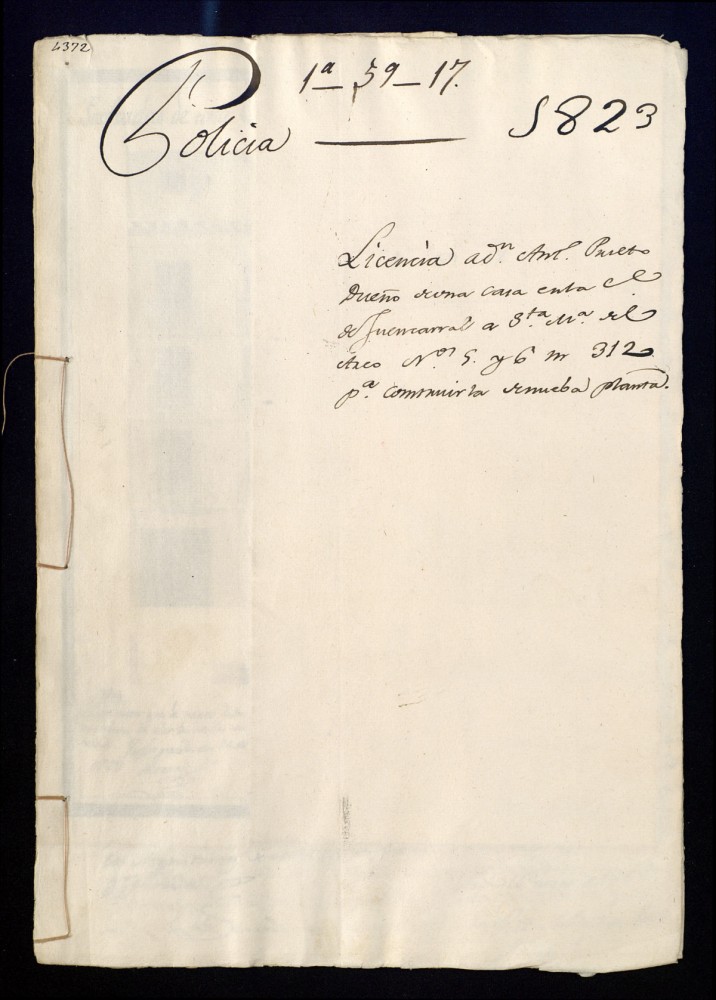 4372
1ª – 59 – 17.
Policia 1823
Licencia a dⁿ. Antº. Prieto
Dueño de una casa en la C.e
de Fuencarral a Sta. Mª. del
Arco Nos 5. y 6 m 312
pª. construirla de nueba planta.